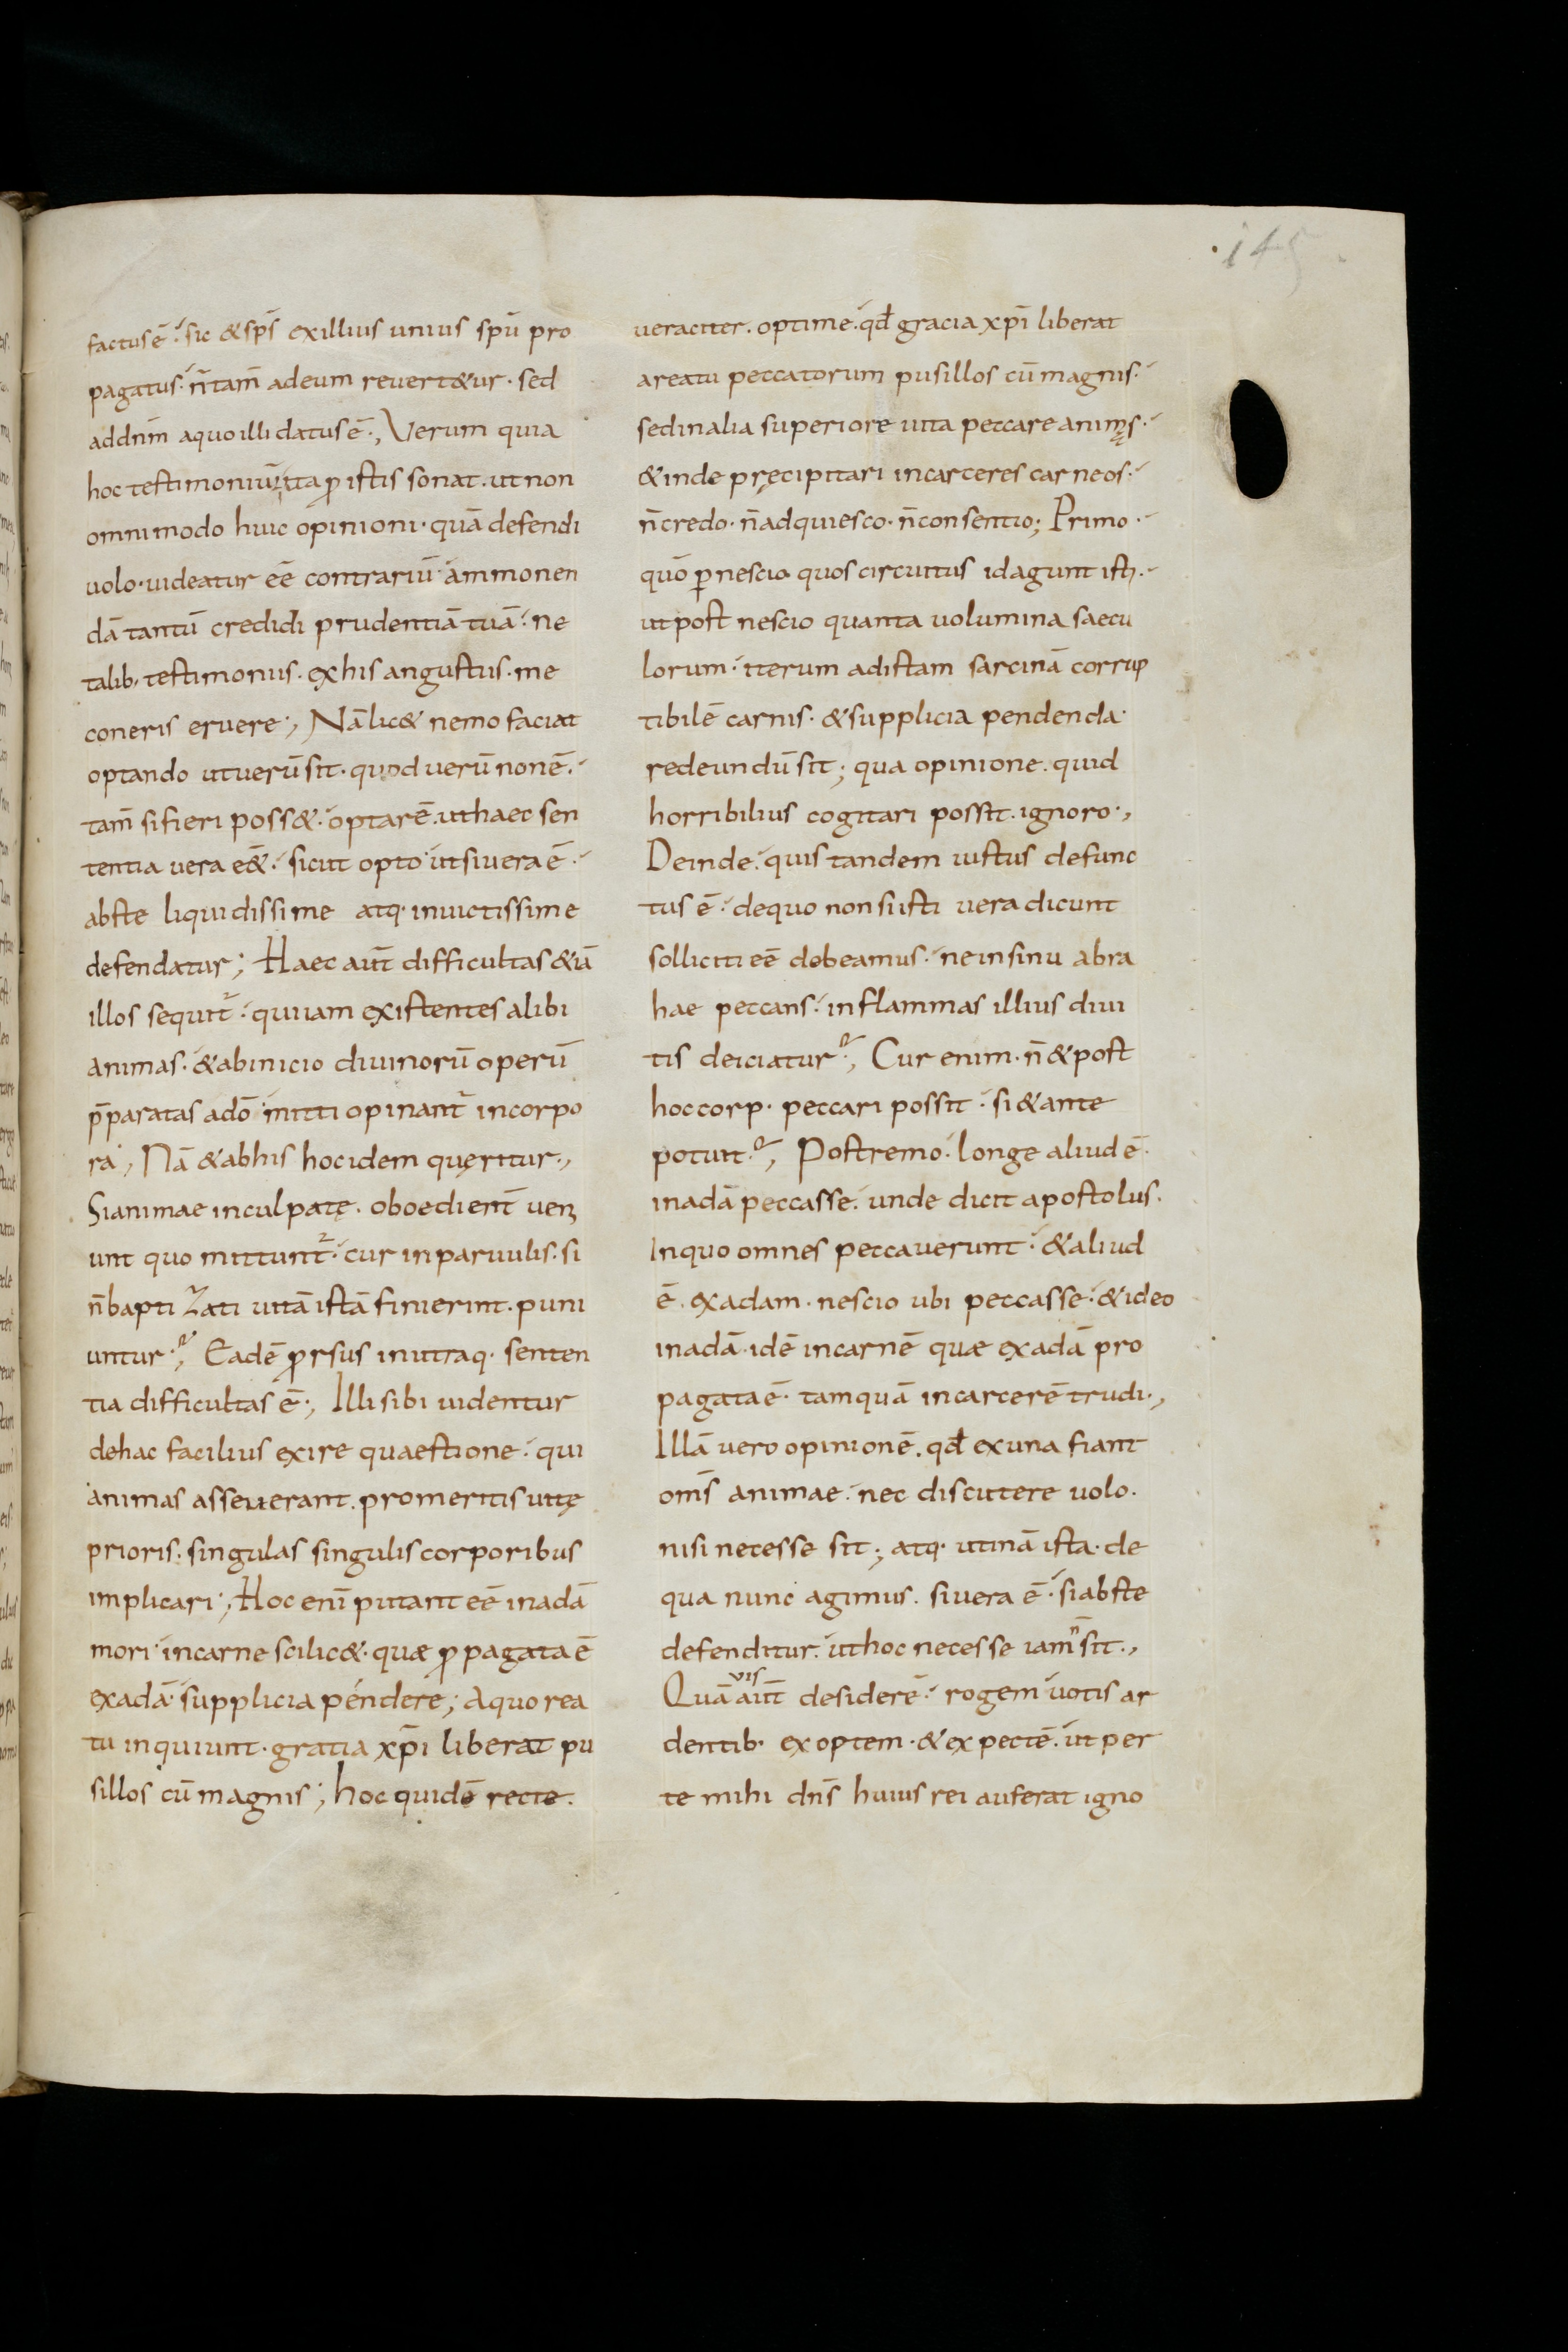 145
factus ē. sic & sp̄s ex illius unius spū pro
pagatus. n̄ tam̄ ad eum revert&ur. sed
ad dn̄m a quo illi datus ē., Verum quia
hoc testimoniū, ita ꝓ istis sonat. ut non
omnimodo huic opinioni. quā defendi
uolo. uideatur eē contrariū. ammonen
dā tantū credidi prudentiā tuā. ne
talib; testimoniis. ex his angustiis. me
coneris eruere., Nā lic& nemo faciat
optando ut uerū sit. quod uerū non ē.
tam̄ si fieri poss&. optarē. ut haec sen
tentia uera eē&. sicut opto ut si uera ē.
abs te liquidissime atq. inuictissime
defendatur; Haec aut̄ difficultas &iā
illos sequit᷑. qui iam existentes alibi
animas. & ab inicio diuinorū operū
p̄paratas a dō mitti opinant᷑ in corpo
ra, Nā & ab his hoc idem quęritur.,
Si animae inculpatę. oboedient̄ ueni
unt quo mittunt᷑. cur in paruulis. si
n̄ baptizati uitā istā finierint. puni
untur., Eadē ꝓrsus in utraq. senten
tia difficultas ē., Illi sibi uidentur
de hac facilius exire quaestione. qui
animas asseuerant. pro meritis uitę
prioris. singulas singulis corporibus
implicari; Hoc enī putant eē in adā
mori. in carne scilic&. quæ ꝓpagata ē
ex adā. supplicia pendere; A quo rea
tu inquiunt. gratia xp̄i liberat pu
sillos cū magnis; hoc quidē recte.
ueraciter. optime. qđ gracia xp̄i liberat
a reatu peccatorum pusillos cū magnis.
sed in alia superiore uita peccare animęs.
& inde pręcipitari in carceres carneos.
n̄ credo. n̄ adquiesco. n̄ consentio; Primo.
quō ꝑ nescio quos circuitus id agunt isti.
ut post nescio quanta uolumina saecu
lorum. iterum ad istam sarcinā corrup
tibilē carnis. & supplicia pendenda.
redeundū sit; qua opinione. quid
horribilius cogitari possit. ignoro.,
Deinde. quis tandem iustus defunc
tus ē. de quo non si isti uera dicunt
solliciti eē debeamus. ne in sinu abra
hae peccans. in flammas illius diui
tis deiciatur., Cur enim. n̄ & post
hoc corp. peccari possit. si & ante
potuit., Postremo. longe aliud ē.
in adā peccasse. unde dicit apostolus.
In quo omnes peccauerunt. & aliud
ē. ex adam. nescio ubi peccasse. & ideo
in adā. idē in carnē quæ ex adā pro
pagata ē. tamquā in carcerē trudi.,
Illā uero opinionē. qđ ex una fiant
om̄s animae. nec discutere uolo.
nisi necesse sit; atq. utinā ista. de
qua nunc agimus. si uera ē. si abs te
defenditur. ut hoc necesse iam n̄ sit.,
Quāuis aut̄ desiderē. rogem uotis ar
dentib. exoptem. & expectē. ut per
te mihi dn̄s huius rei auferat igno